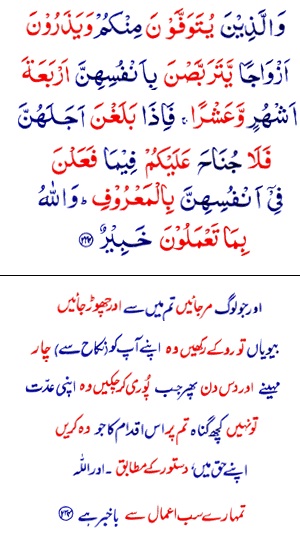 وَالَّذِيْنَ يُتَوَفَّوْنَ مِنْكُمْ وَيَذَرُوْنَ
اَزْوَاجًا يَّتَرَبَّصْنَ بِاَنْفُسِهِنَّ اَرْبَعَةَ
اَشْهُرٍ وَّعَشْرًا ۚ فَاِذَا بَلَغْنَ اَجَلَهُنَّ
فَلَا جُنَاحَ عَلَيْكُمْ فِيْمَا فَعَلْنَ
فِيْٓ اَنْفُسِهِنَّ بِالْمَعْرُوْفِ ؕ وَاللهُ
بِمَا تَعْمَلُوْنَ خَبِيْرٌ ۝۲۳۴
اور جو لوگ مرجائیں تم میں سے اور چھوڑ جائیں
بیویاں تو روکے رکھیں وہ اپنے آپ کو (نکاح سے) چار
مہینے اور دس دن پھر جب پُوری کرچکیں وہ اپنی عدّت
تو نہیں کچھ گناہ تم پر اس اقدام کا جو وہ کریں
اپنے حق میں، دستور کے مطابق ۔ اور اللہ
تمہارے سب اعمال سے باخبر ہے ۝۲۳۴